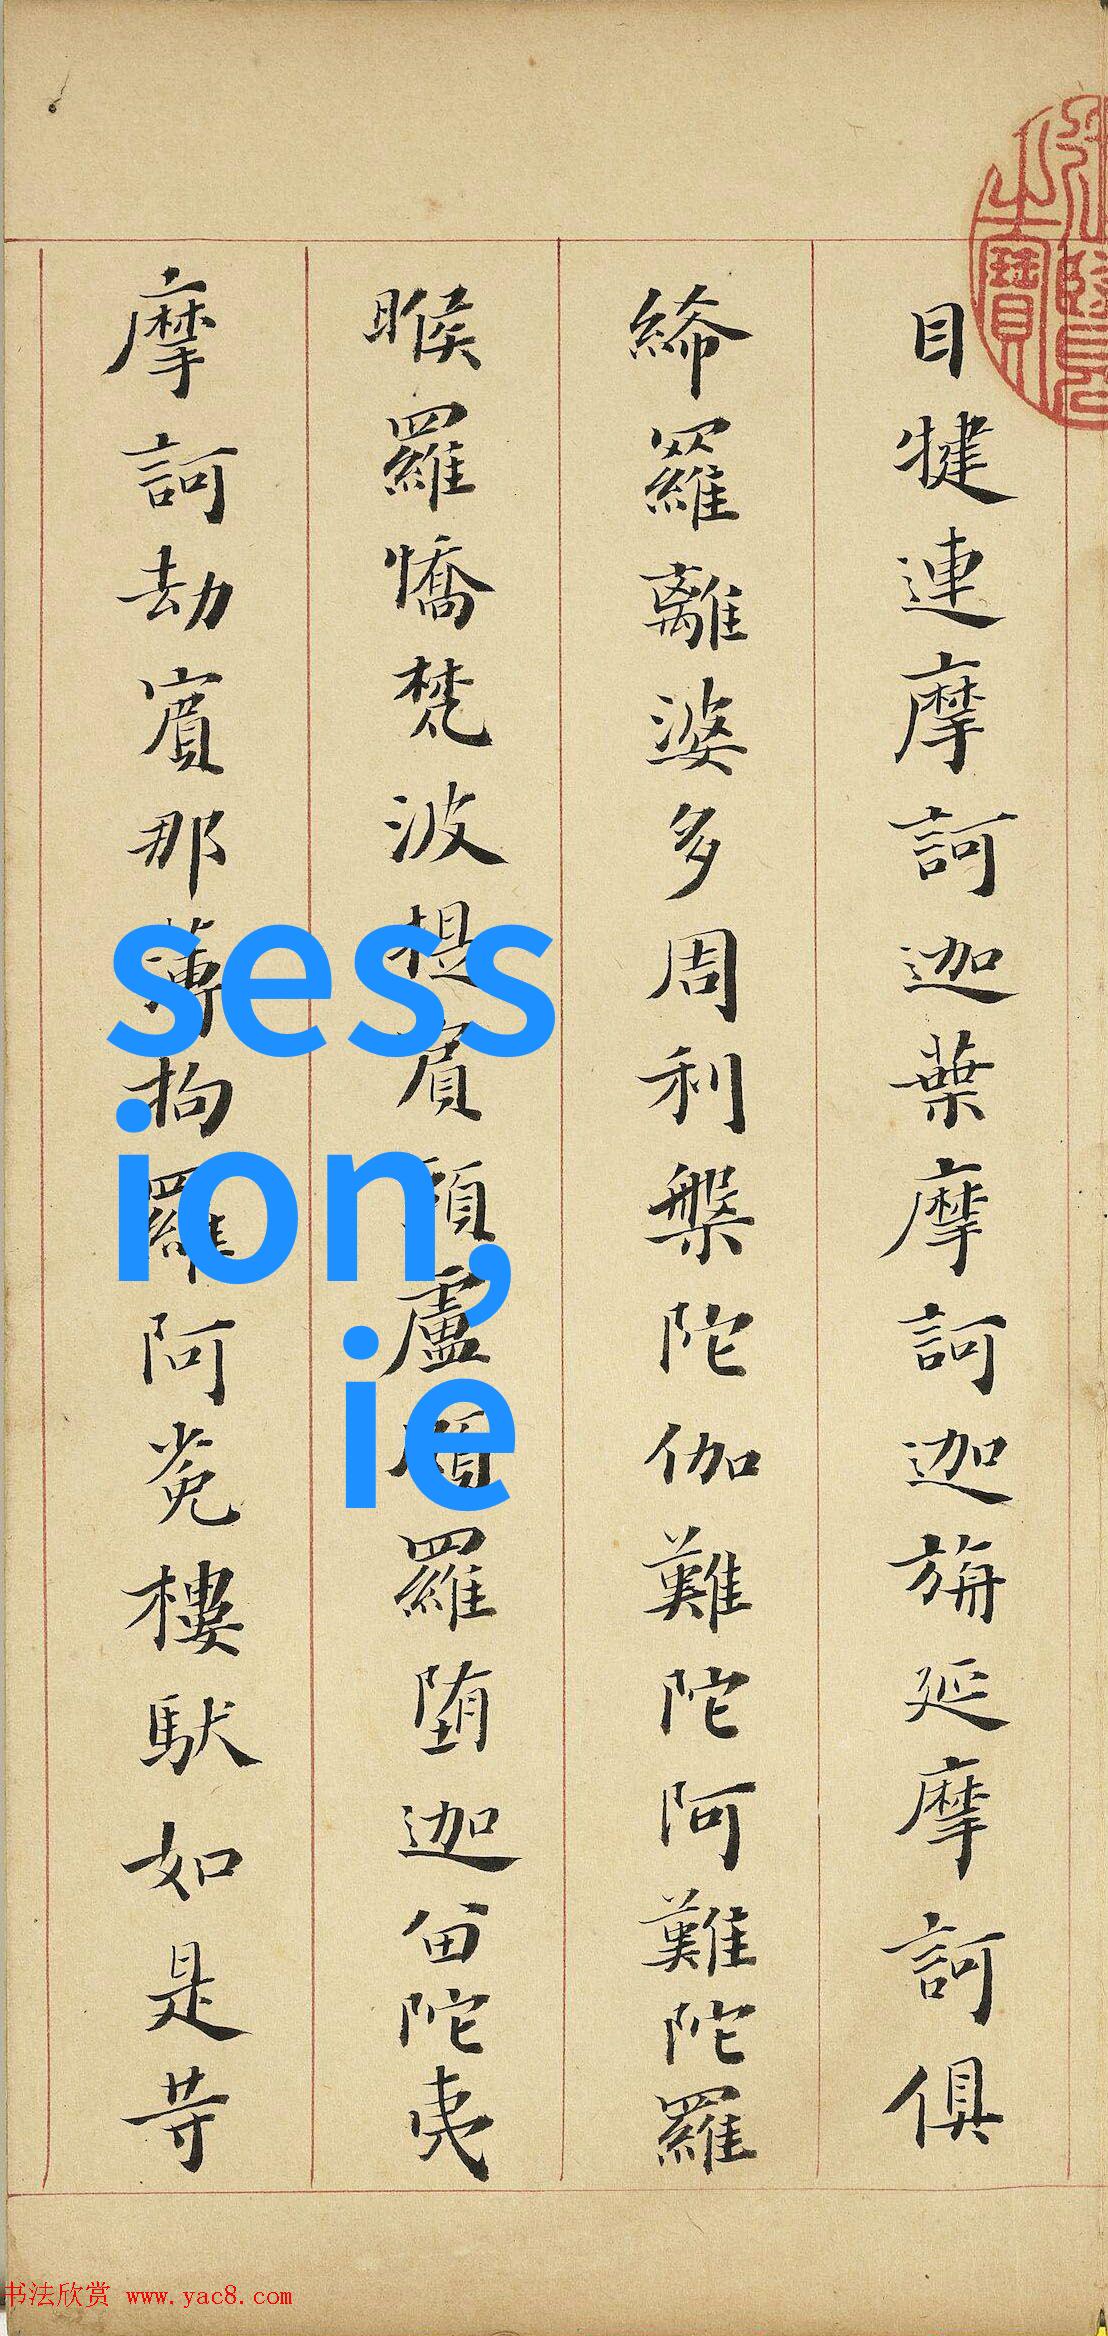 目犍連摩訶迦葉摩訶迦旃延摩訶俱
絺羅離婆多周利槃陀伽難陀阿難陀羅
睺羅憍梵波提賓頭盧頗羅墮迦留陀夷
摩訶劫賓那薄拘羅阿㝹樓馱如是等
sess
ion,
ie
书法欣赏 www.yac8.com